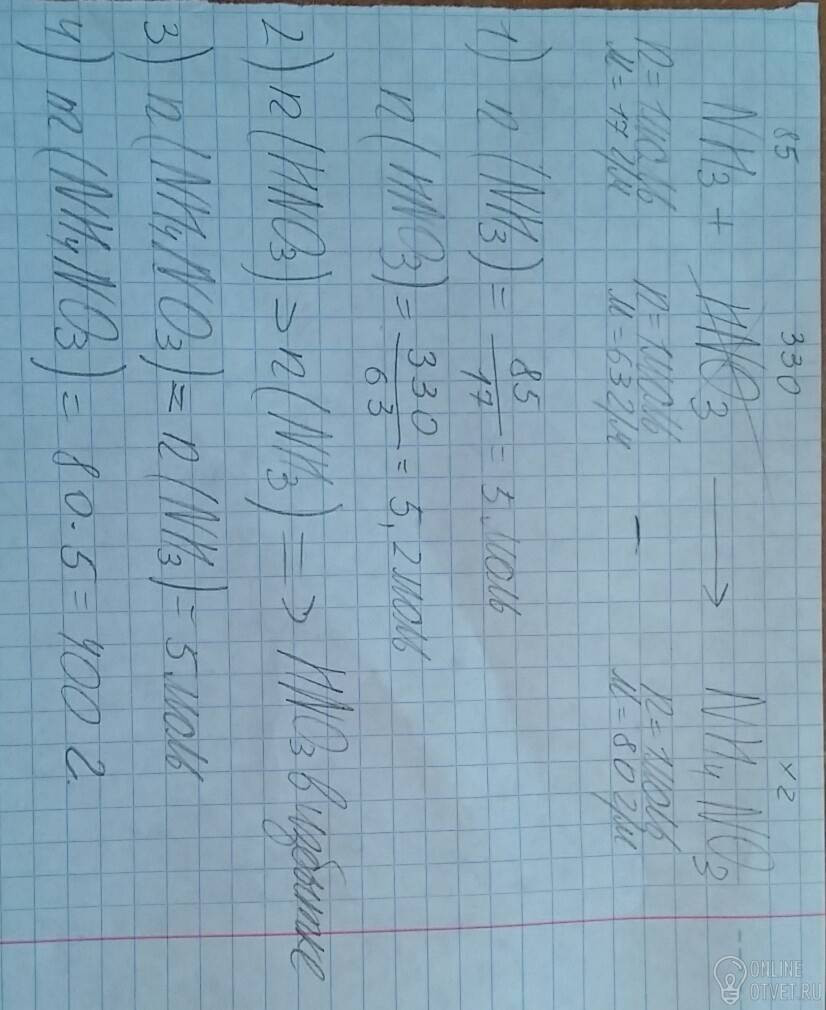 85 330 x г
NH3 + HNO3 → NH4NO3
n=1моль n=1моль n=1моль
M=17г/м M=63г/м – M=80г/м
1) n(NH3) = 85/17 = 5 моль
n(HNO3) = 330/63 = 5,2моль
2) n(HNO3) > n(NH3) => HNO3 в избытке
3) n(NH4NO3) = n(NH3) = 5моль
4) m(NH4NO3) = 80·5 = 400 г.
ONLINE
OTVET.RU